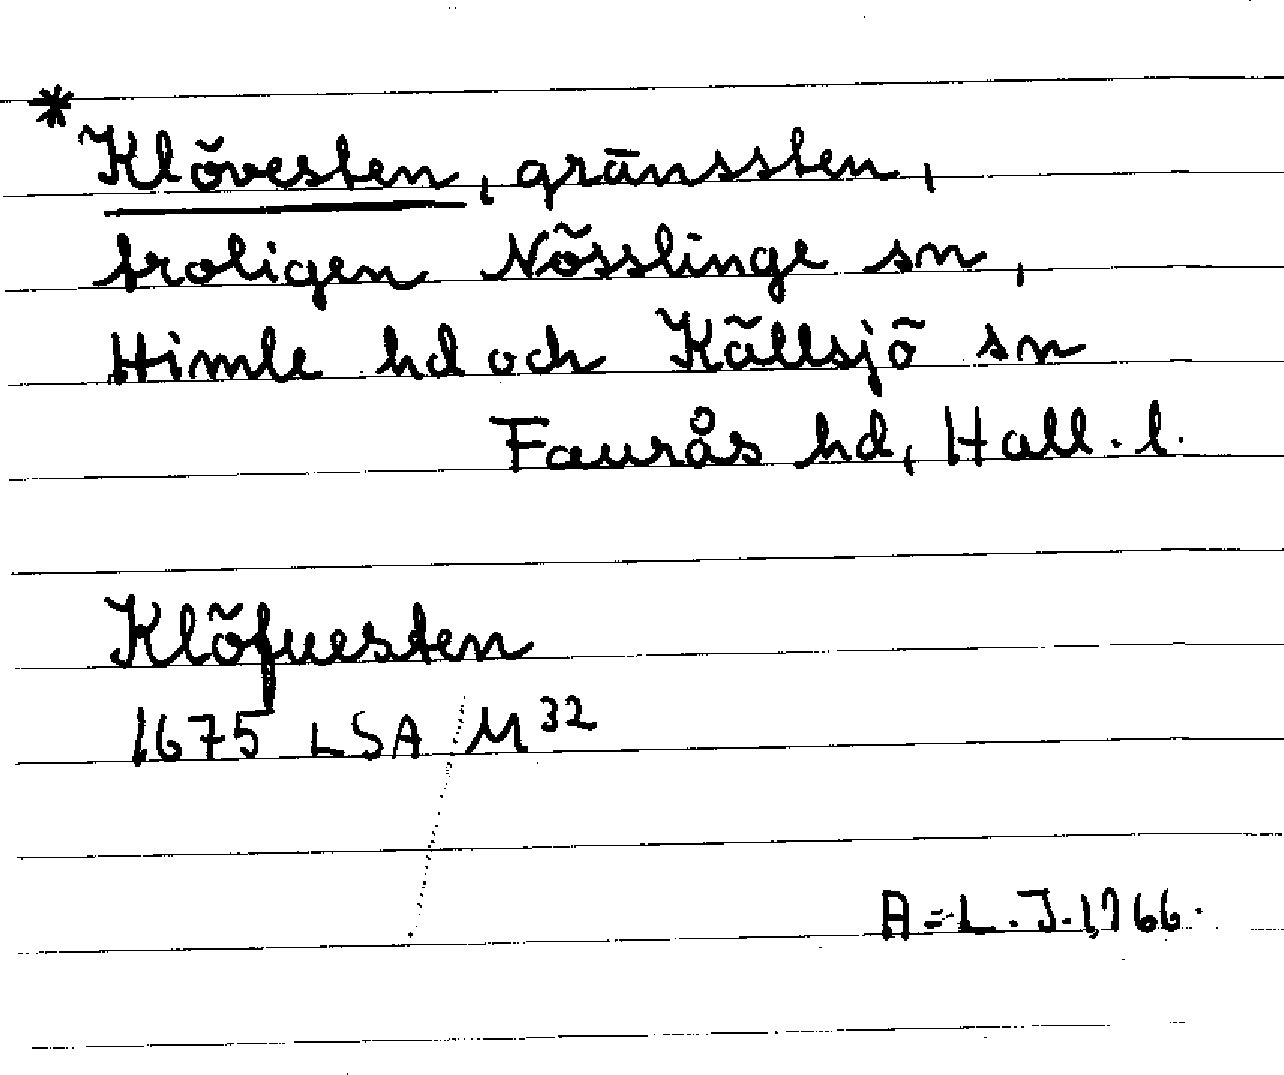 * Klövesten, gränssten,
troligen Nösslinge sn,
Himle hd och Källsjö sn
Faurås hd, Hall. l.
Klöfuesten
1675 LSA M 32
A=L. J. 1966.